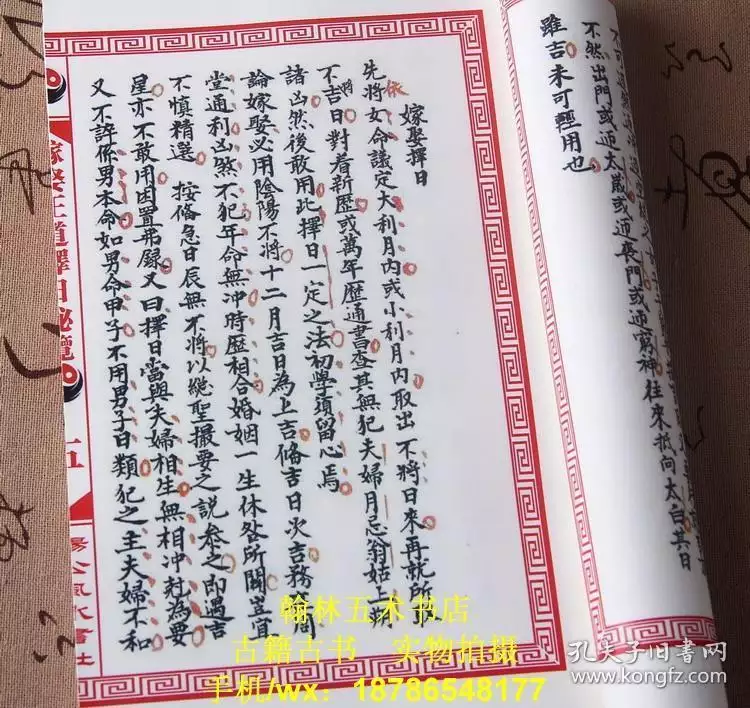 不然出門或逥太歲或逥喪門或逥窮神往來抵向太白其日
雖吉未可輕用也
嫁娶擇日
依
先將女命議定大利月内或小利月内取出不將日來再就所
將
不吉日對着新歷或萬年歷通書查其無犯夫婦月忌翁姑上
諸凶然後敢用此擇日一定之法初學須留心焉
論嫁娶必用陰陽不將十二月吉日為上吉俻吉日次吉務周
堂通利凶煞不犯年命無冲時歷相合婚姻一生休咎所關豈宜
不慎精選 按俻急日辰無不將以緫聖撮要之説参之即過吉
星亦不敢用因置弗録又曰擇日當與夫婦相生無相冲尅為要
又不許係男本命如男命甲子不用男子日類犯之主夫婦不和
嫁娶王道擇日秘覽
五
楊公風水書社
翰林五术书店
古籍古书 实物拍摄
手机/wx：18786548177
孔夫子旧书网
www.kongfz.com